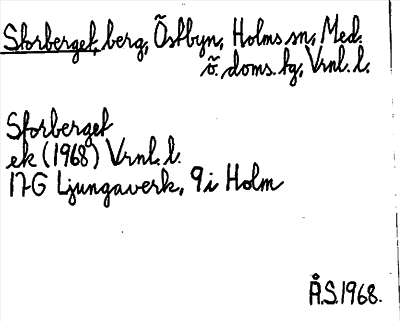 Storberget, berg, Östbyn, Holms sn, Med.
ö. doms. tg, Vrnl. l.
Storberget
ek (1968) Vrnl. l.
17G Ljungaverk, 9i Holm
Å.S.1968.